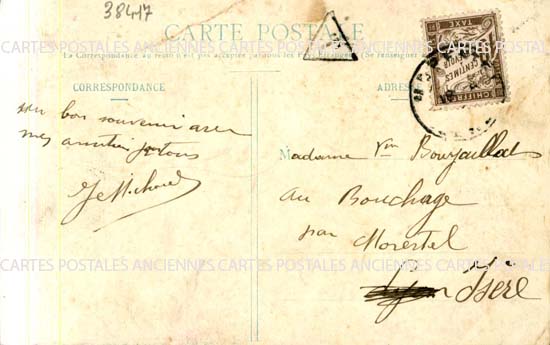 38417
CARTE POSTALE
La Correspondance au recto n'est pas acceptée par tous les Pays Étrangers (Se renseigner
CORRESPONDANCE
ADRES
un bon souvenir avec
mes amitiés
Madame Vve
au Bouchage
par Morestel
Isère
CHIFFRE
CENTIMES
TAXE
CARTES POSTALES ANCIENNES CARTES POSTALES ANCIENNES CARTES POSTALES ANCIENNES
CARTES POSTALES ANCIENNES CARTES POSTALES ANCIENNES CARTES POSTALES ANCIENNES